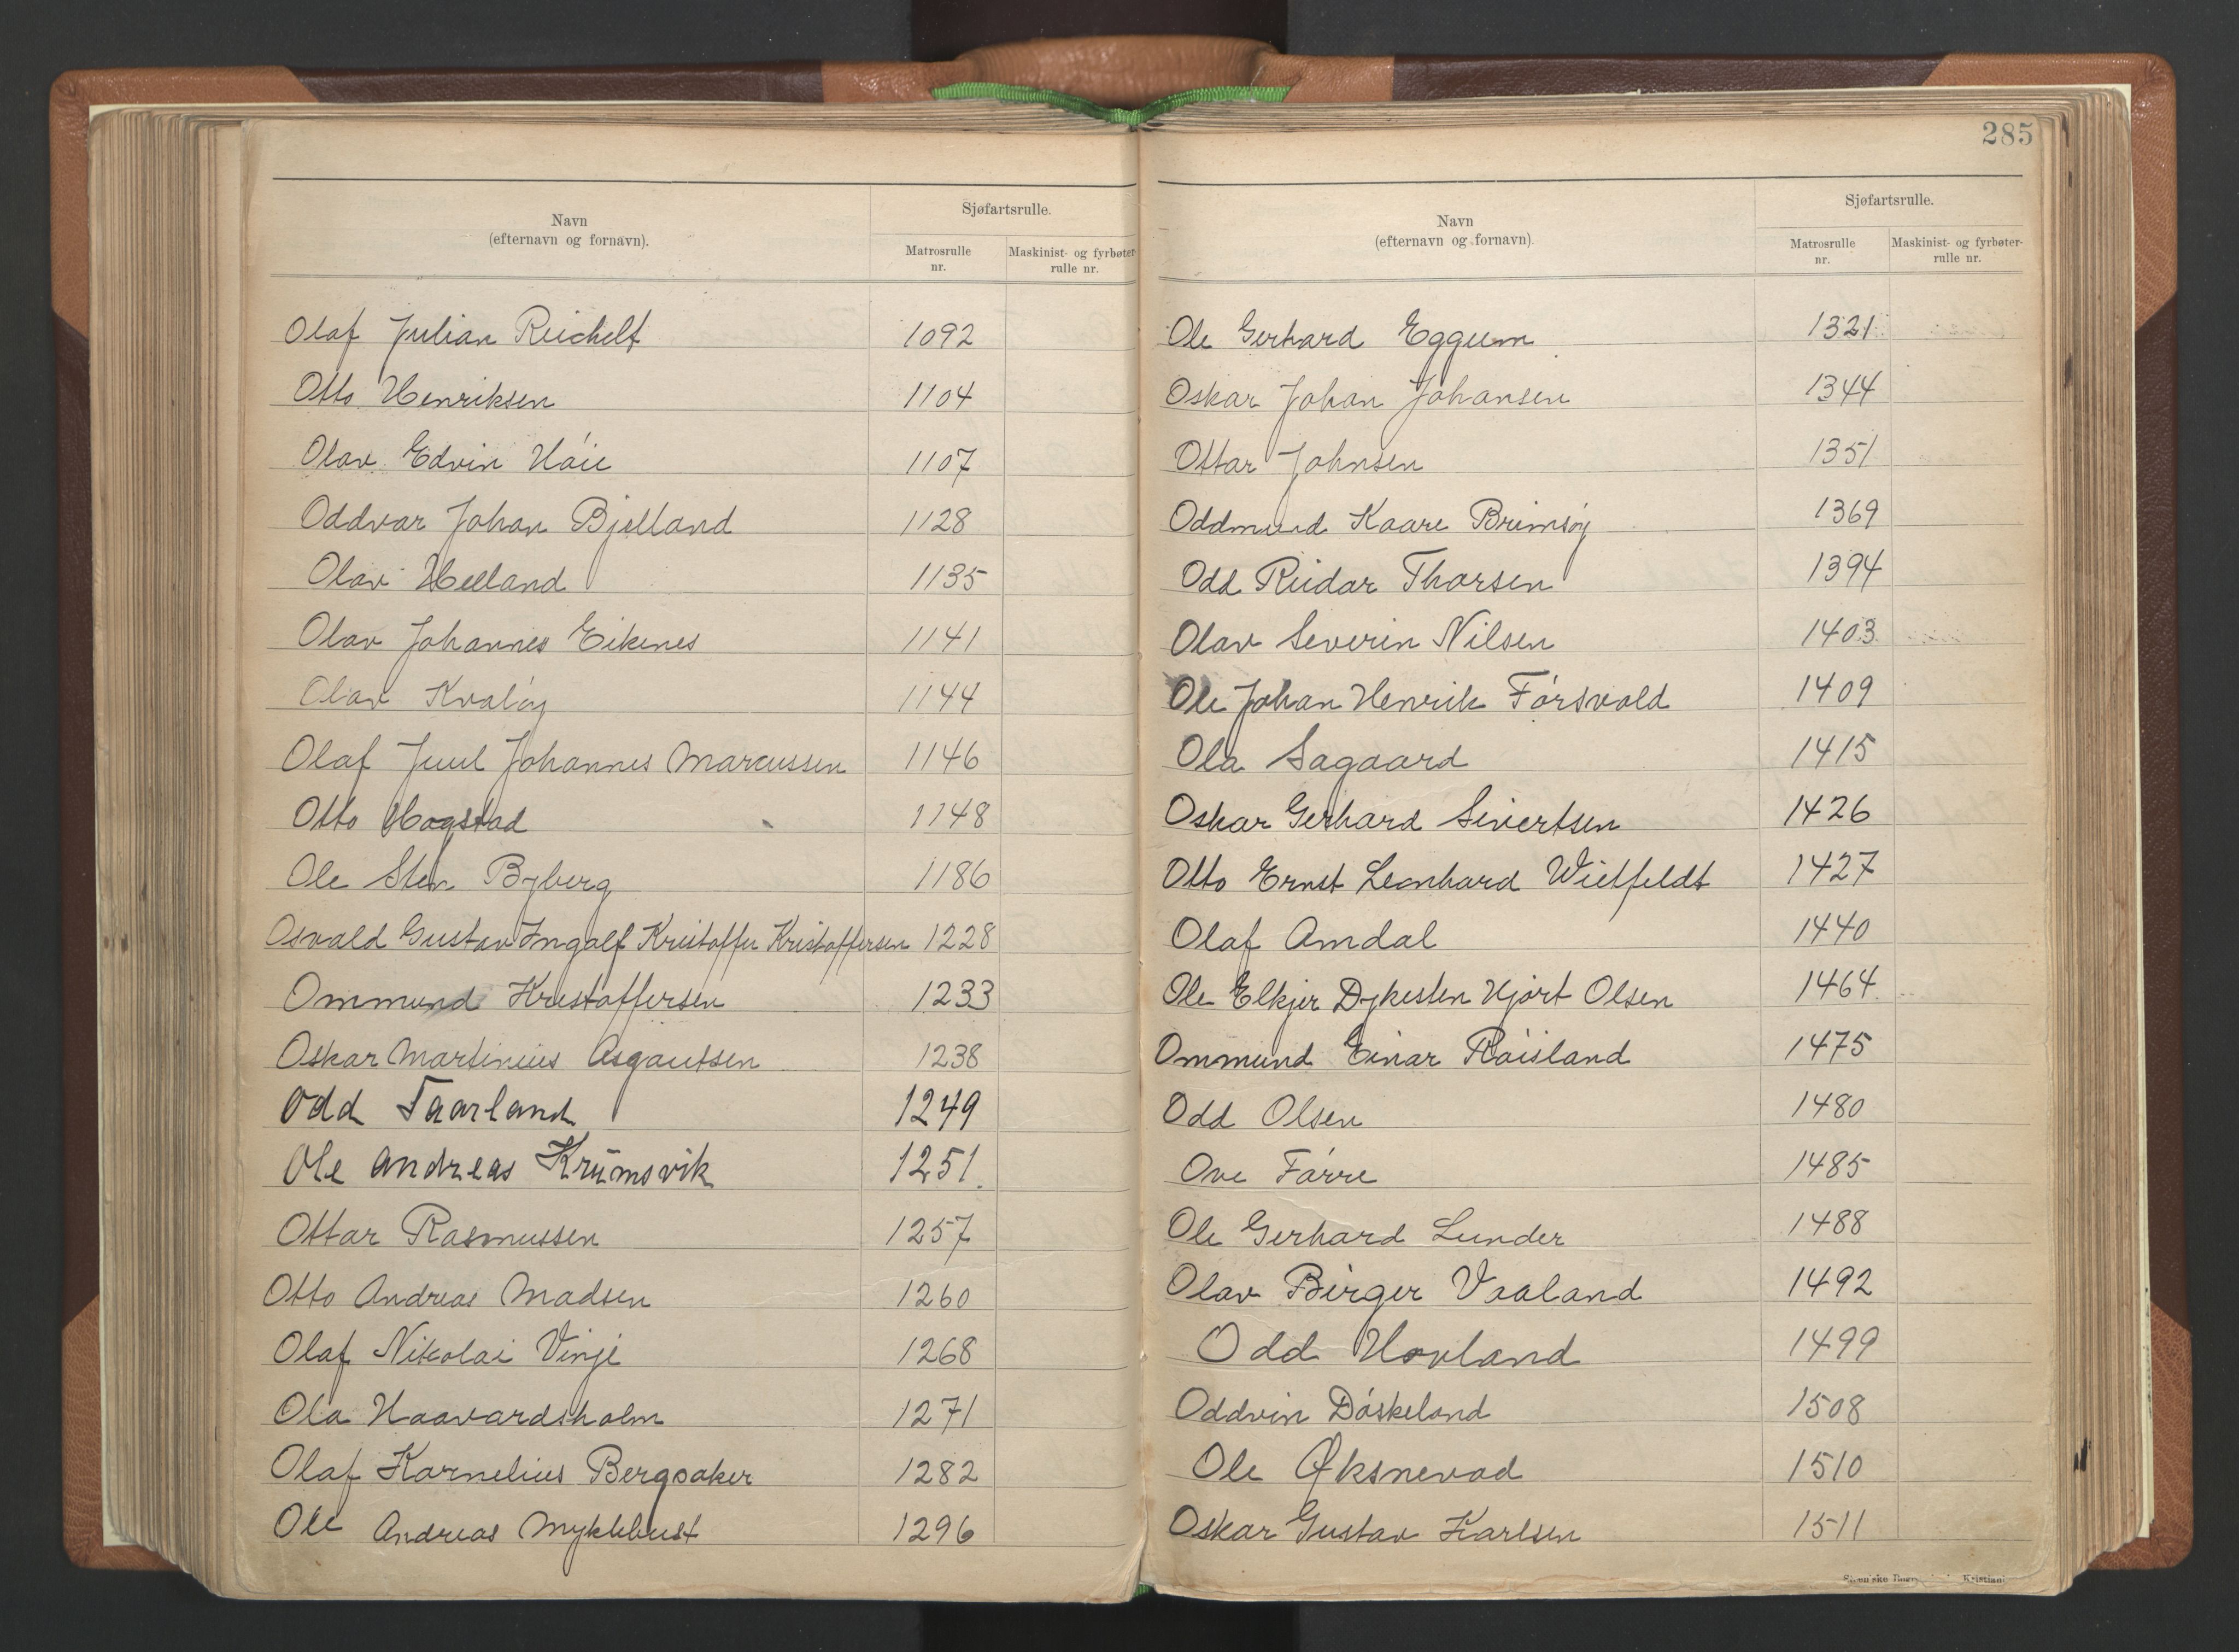 Navn
(efternavn og fornavn).
Sjøfartsrulle.
Matrosrulle
nr.
Maskinist- og fyrbøter-
rulle nr.
Olaf Julian Reichelt 1092
Otto Henriksen 1104
Olav Edvin Høie 1107
Oddvar Johan Bjelland 1128
Olav Helland 1135
Olav Johannes Eikenes 1141
Olav Kvaløy 1144
Olaf Juul Johannes Marcussen 1146
Otto Hogstad 1148
Ole Sten Byberg 1186
Osvald Gustav Ingolf Kristoffer Kristoffersen 1228
Ommund Kristoffersen 1233
Oskar Martinius Asgautsen 1238
Odd Taarland 1249
Ole Andreas Krümsvik 1251
Ottar Rasmussen 1257
Otto Andreas Madsen 1260
Olaf Nikolai Vinje 1268
Ola Haavardsholm 1271
Olaf Kornelius Bergsaker 1282
Ole Andreas Myklebust 1296
285
Navn
(efternavn og fornavn).
Sjøfartsrulle.
Matrosrulle
nr.
Maskinist- og fyrbøter-
rulle nr.
Ole Gerhard Eggum 1321
Oskar Johan Johansen 1344
Ottar Johnsen 1351
Oddmund Kaare Brimsøy 1369
Odd Reidar Thorsen 1394
Olav Severin Nilsen 1403
Ole Johan Henrik Førsvold 1409
Ola Sagaard 1415
Oskar Gerhard Sivertsen 1426
Otto Ernst Leonhard Wietfeldt 1427
Olaf Amdal 1440
Ole Elkjer Dykesten Hjørt Olsen 1464
Ommund Einar Røisland 1475
Odd Olsen 1480
Ove Førre 1485
Ole Gerhard Lunder 1488
Olav Birger Vaaland 1492
Odd Hovland 1499
Oddvin Døskeland 1508
Ole Øksnevad 1510
Oskar Gustav Karlsen 1511